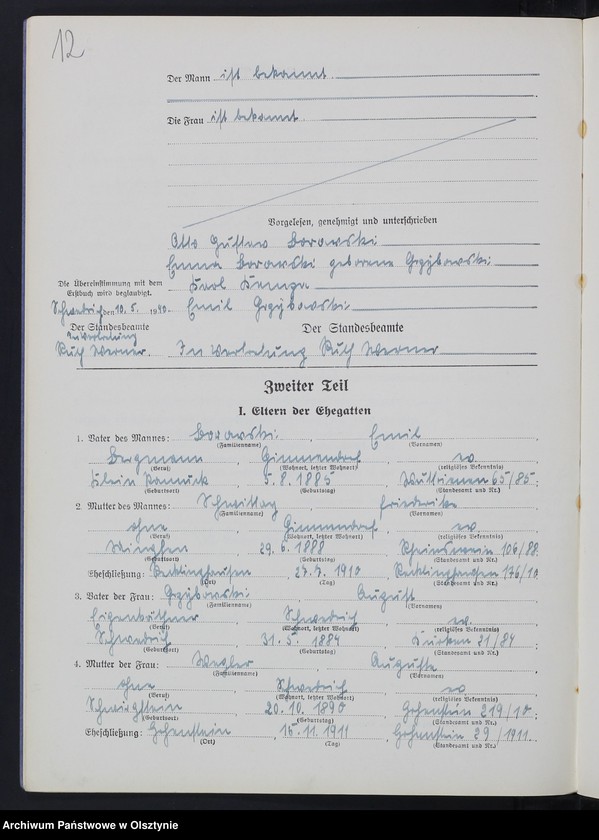 12
Der Mann ist bekannt
Die Frau ist bekannt
Vorgelesen, genehmigt und unterschrieben
Otto Gustav Borowski
Emma Borowski geborene Grzybowski
Die Übereinstimmung mit dem
Erstbuch wird beglaubigt.
Karl Kempa
Schwedrich den 10. 5. 1940.
Emil Grzybowski
Der Standesbeamte
In Vertretung
Der Standesbeamte
Ruth Werner. In Vertretung Ruth Werner
Zweiter Teil
I. Eltern der Ehegatten
1. Vater des Mannes: Borowski, Emil
(Familienname) (Vornamen)
Bergmann, Gimmendorf, ev.
(Beruf) (Wohnort, letzter Wohnort) (religiöses Bekenntnis)
Klein, 5. 8. 1885, 65/85;
(Geburtsort) (Geburtstag) (Standesamt und Nr.)
2. Mutter des Mannes: Friederike
(Familienname) (Vornamen)
ohne, Gimmendorf, ev.
(Beruf) (Wohnort, letzter Wohnort) (religiöses Bekenntnis)
29. 6. 1888, Rheinswein 106/88.
(Geburtsort) (Geburtstag) (Standesamt und Nr.)
Eheschließung: Recklinghausen, 27. 7. 1910, Recklinghausen 136/10
(Ort) (Tag) (Standesamt und Nr.)
3. Vater der Frau: Grzybowski, August
(Familienname) (Vornamen)
Eigenkäthner, Schwedrich, ev.
(Beruf) (Wohnort, letzter Wohnort) (religiöses Bekenntnis)
Schwedrich, 31. 5. 1884, Kurken 21/84;
(Geburtsort) (Geburtstag) (Standesamt und Nr.)
4. Mutter der Frau: Wegler, Auguste
(Familienname) (Vornamen)
ohne, Schwedrich, ev.
(Beruf) (Wohnort, letzter Wohnort) (religiöses Bekenntnis)
20. 10. 1890, Hohenstein 219/10;
(Geburtsort) (Geburtstag) (Standesamt und Nr.)
Eheschließung: Hohenstein, 15. 11. 1911, Hohenstein 29/1911.
(Ort) (Tag) (Standesamt und Nr.)
Archiwum Państwowe w Olsztynie